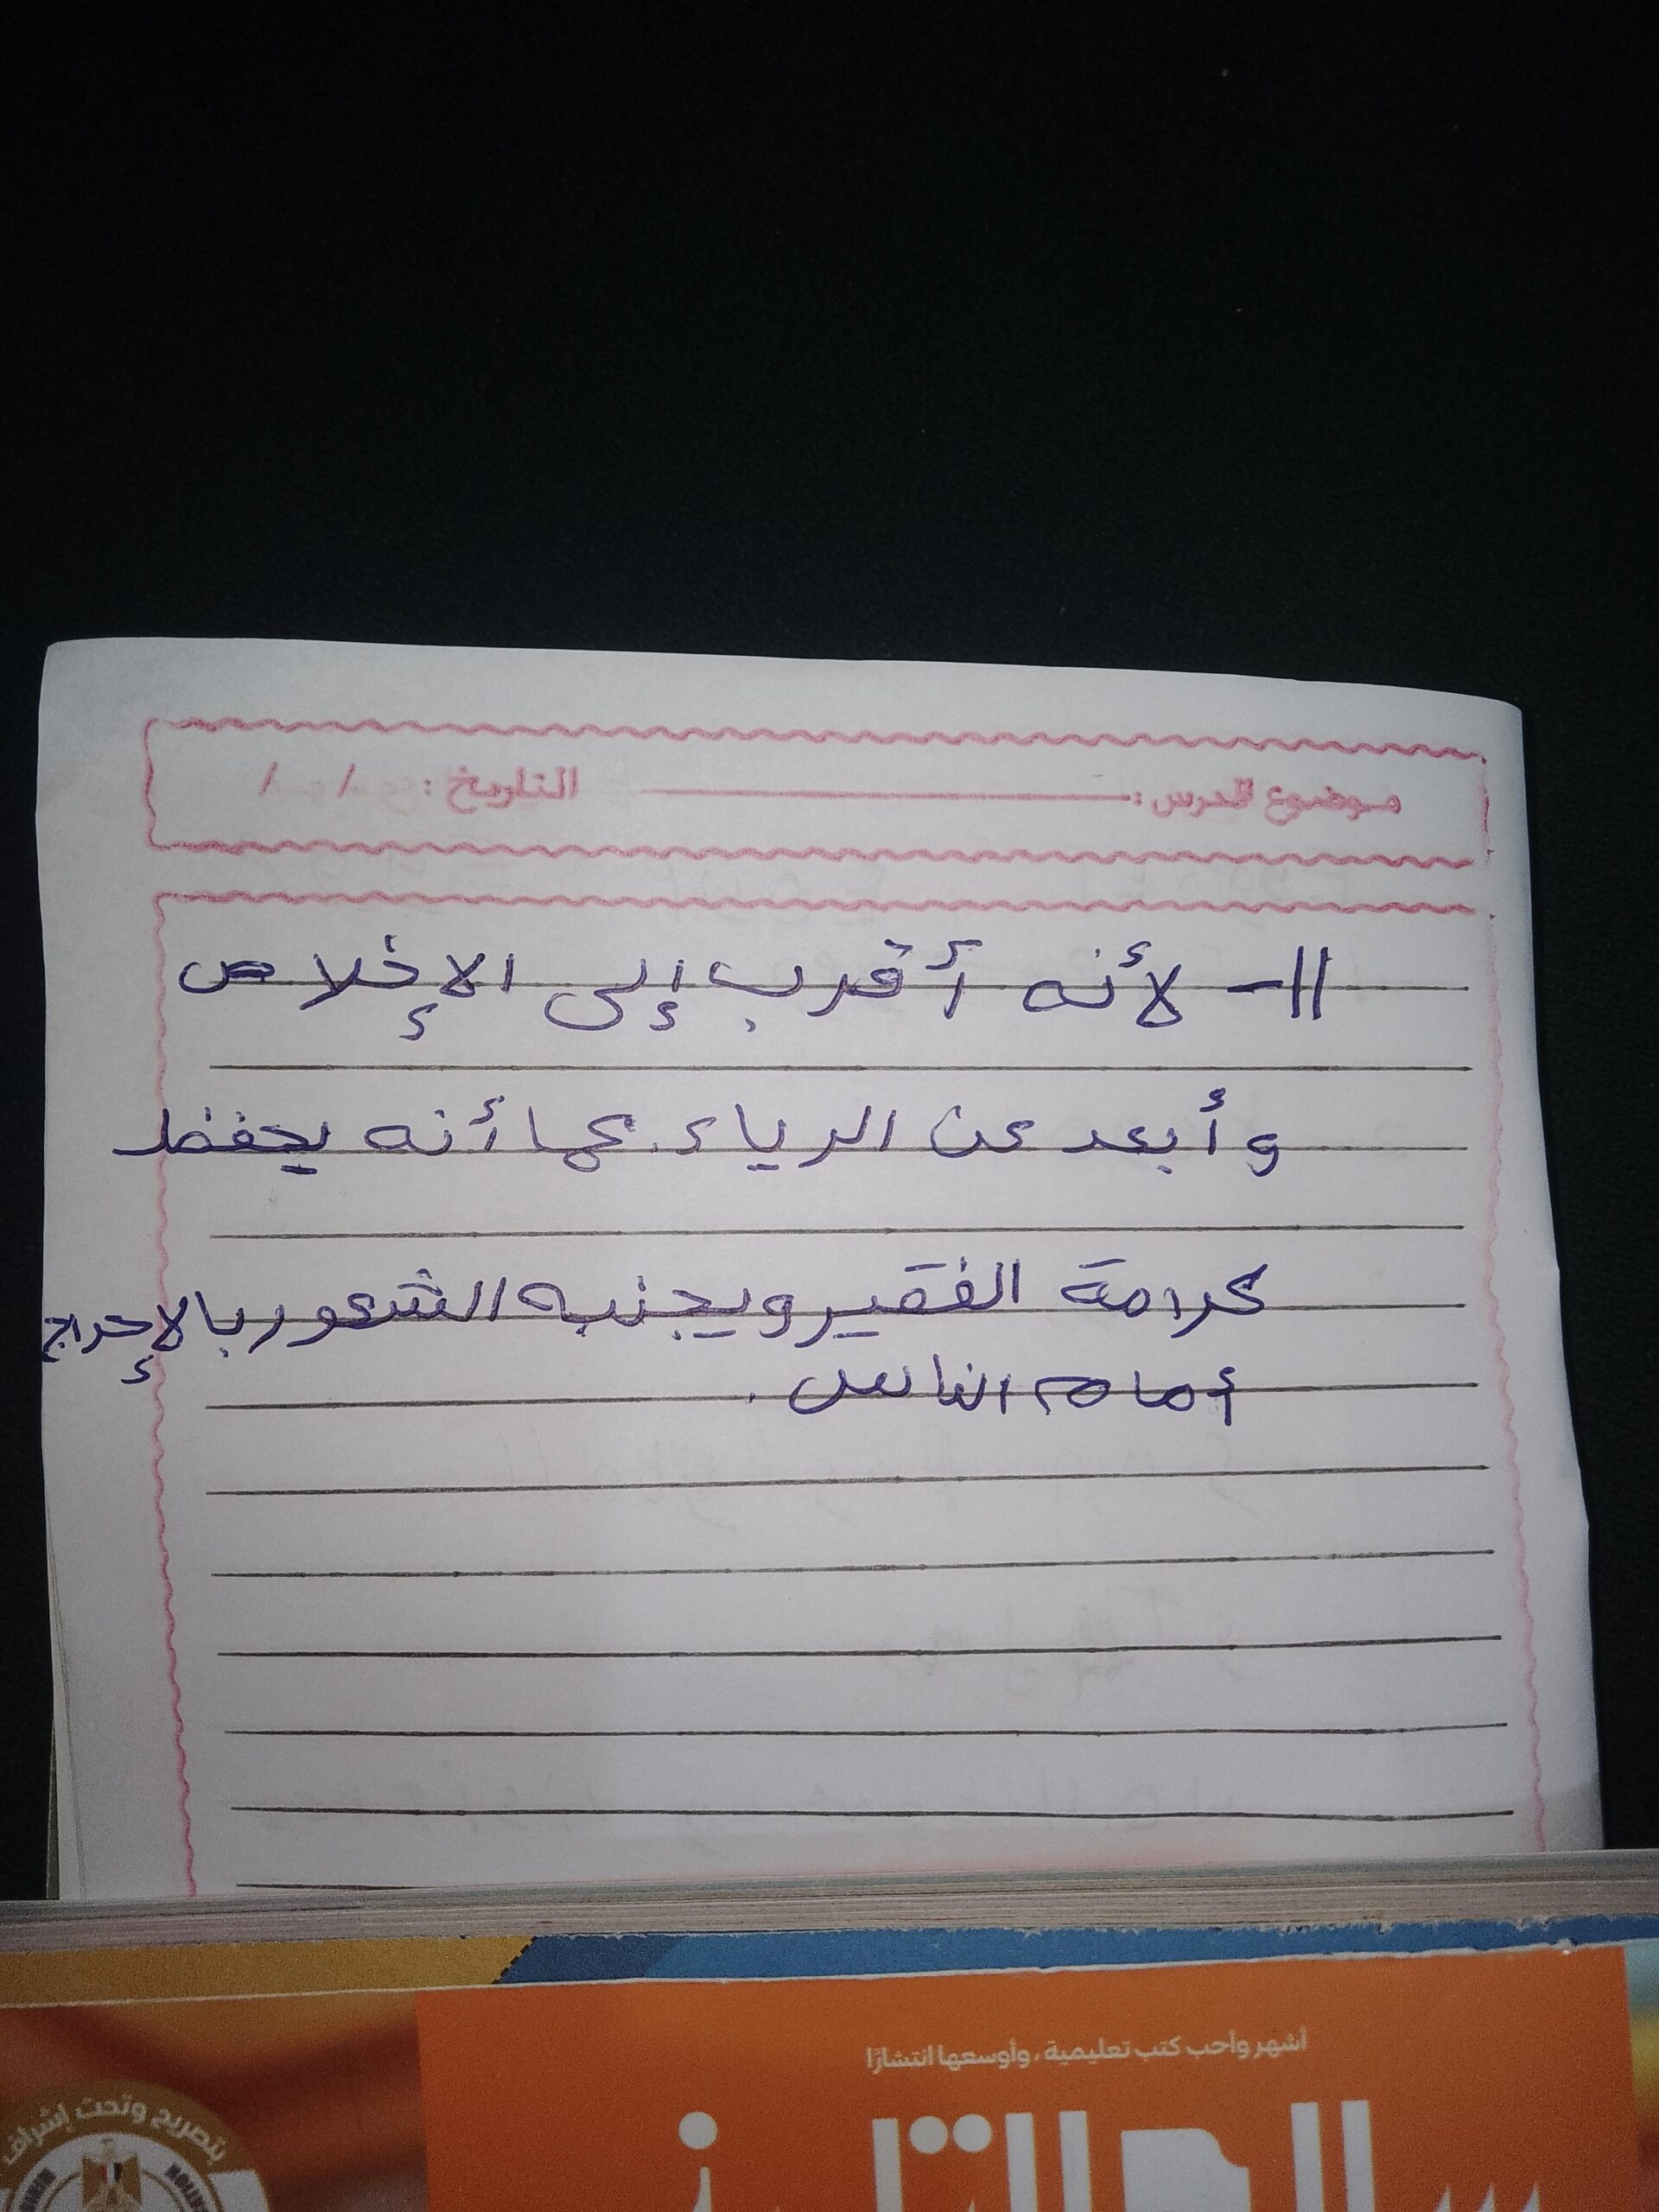 موضوع الدرس : التاريخ : / /
11- لأنه أقرب إلى الإخلاص
وأبعد عن الرياء. كما أنه يحفظ
كرامة الفقير ويجنبه الشعور بالإحراج
أمام الناس.
أشهر وأحب كتب تعليمية، وأوسعها انتشارًا
بتصريح وتحت إشراف